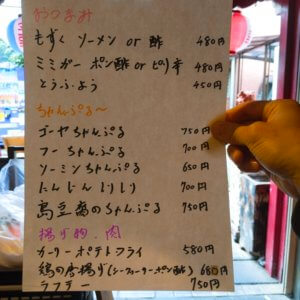 おつまみ
もずく ソーメン or 酢 480円
ミミガー ポン酢 or ピリ辛 480円
とうふよう 450円
ちゃんぷる～
ゴーヤちゃんぷる 750円
フーちゃんぷる 700円
ソーミンちゃんぷる 650円
にんじんしりしり 700円
島豆腐のちゃんぷる 750円
揚げ物、肉
カーリーポテトフライ 580円
鶏の唐揚げ(シークヮーサーポン酢) 680円
ラフテー 750円